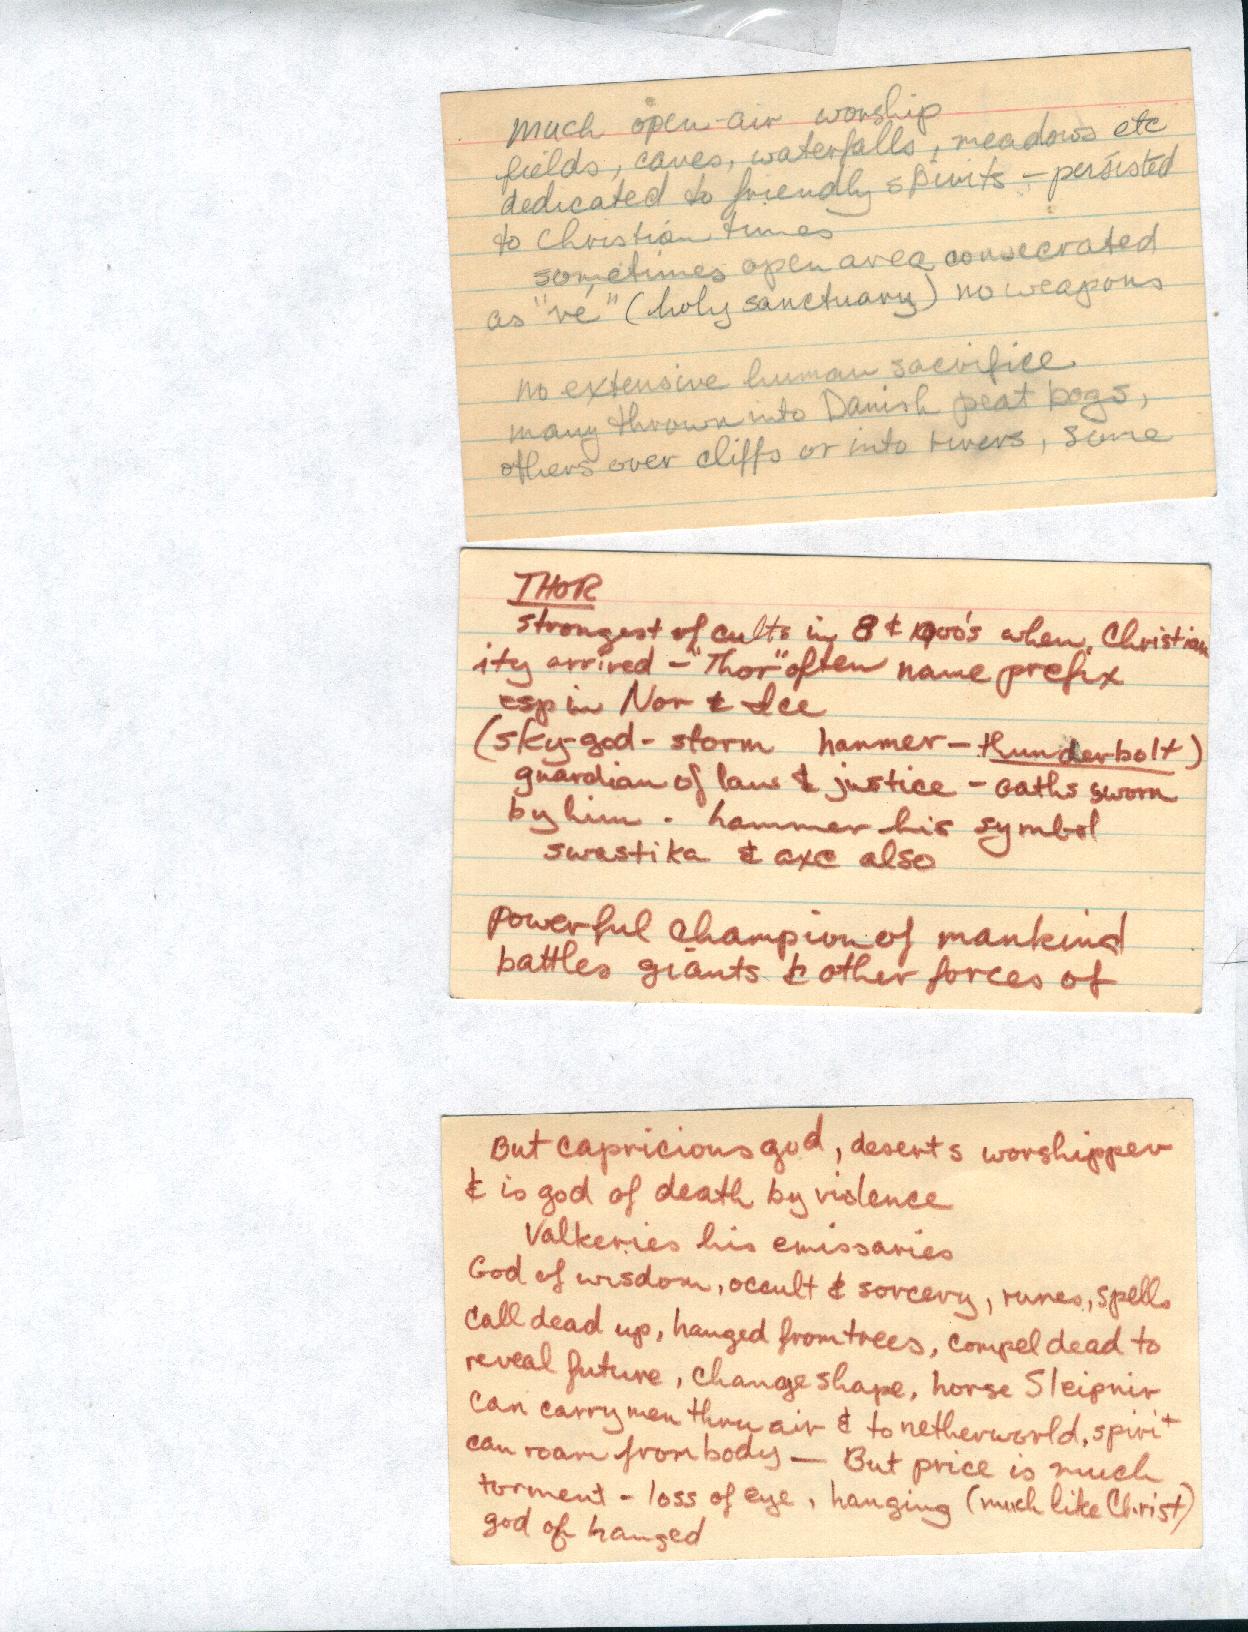 Much open-air worship
fields, caves, waterfalls, meadows etc
dedicated to friendly spirits - persisted
to Christian times
sometimes open area consecrated
as "vé" (holy sanctuary) no weapons
no extensive human sacrifice
many thrown into Danish peat bogs,
others over cliffs or into rivers, some
THOR
strongest of cults in 8 & 900's when Christian
ity arrived - "Thor" often name prefix
esp in Nor & Ice
(sky-god - storm hammer - thunderbolt)
guardian of law & justice - oaths sworn
by him. hammer his symbol
swastika & axe also
Powerful champion of mankind
battles giants & other forces of
But capricious god, deserts worshipper
& is god of death by violence
Valkeries his emissaries
God of wisdom, occult & sorcery, runes, spells
call dead up, hanged from trees, compel dead to
reveal future, change shape, horse Sleipnir
can carry men thru air & to netherworld, spirit
can roam from body — But price is much
torment - loss of eye, hanging (much like Christ)
god of hanged